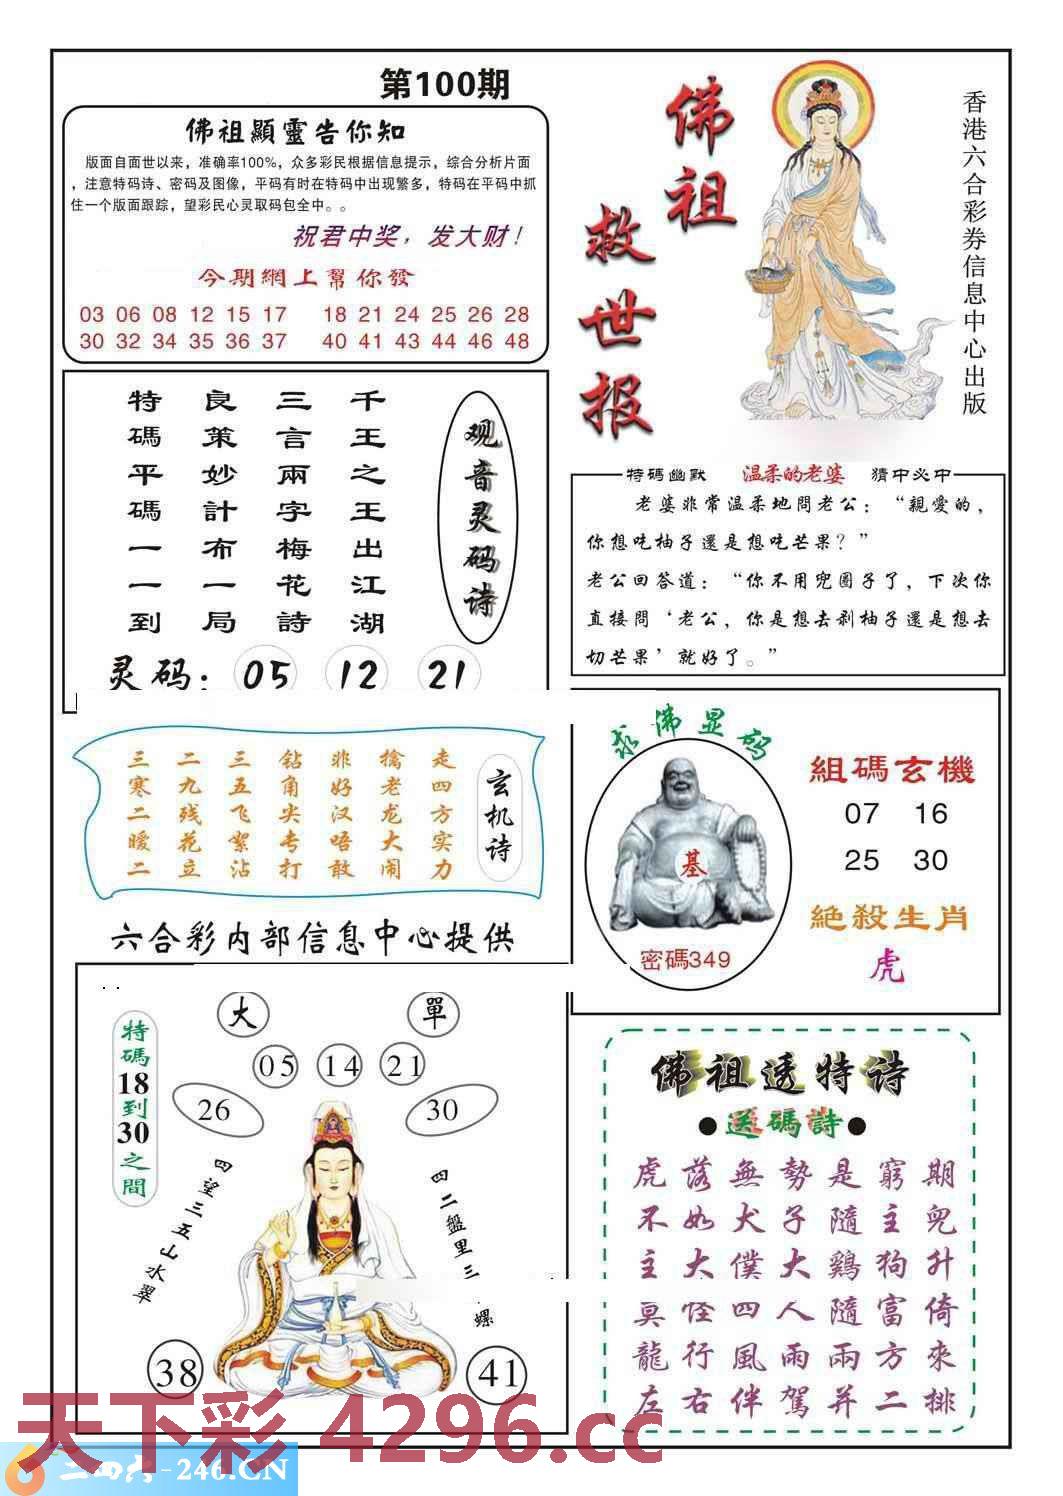 第100期
佛祖顯靈告你知
版面自面世以来，准确率100%，众多彩民根据信息提示，综合分析片面
，注意特码诗、密码及图像，平码有时在特码中出现繁多，特码在平码中抓
住一个版面跟踪，望彩民心灵取码包全中。。
祝君中奖，发大财！
今期網上幫你發
03 06 08 12 15 17 18 21 24 25 26 28
30 32 34 35 36 37 40 41 43 44 46 48
佛祖
救世报
香港六合彩券信息中心出版
观音灵码诗
千王之王出江湖
三言兩字梅花詩
良策妙計布一局
特碼平碼一一到
灵码： 05 12 21
特碼幽默 温柔的老婆 猜中必中
老婆非常温柔地問老公：“親愛的，
你想吃柚子還是想吃芒果？”
老公回答道：“你不用兜圈子了，下次你
直接問‘老公，你是想去剥柚子還是想去
切芒果’就好了。”
玄机诗
走四方实力
擒老龙大闹
非好汉唔敢
钻角尖专打
三五飞絮沾
二九残花立
三寒二暖二
求佛显码
基
密碼349
組碼玄機
07 16
25 30
絶殺生肖
虎
六合彩内部信息中心提供
大
單
05 14 21
26
30
特碼18到30之間
四望三五山水翠
四二盤里三
螺
38
41
佛祖透特诗
●送碼詩●
期兜升倚來排
窮主狗富方二
是隨鷄隨兩并
勢子大人雨駕
無犬僕四風伴
落如大怪行右
虎不主真龍左
天下彩 4296.cc
二四六-246.CN